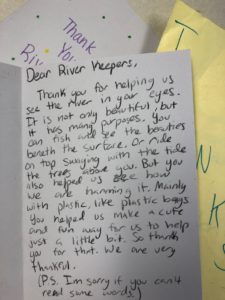 Thank
You
Riv
I
N
K
S
Dear River Keepers,
Thank you for helping us
see the river in your eyes.
It is not only beautiful, but
it has many purposes. You
can fish and see the beauties
beneth the surface. Or ride
on top swaying with the tide
the trees above you. But you
also helped us see how
we are harming it. Mainly
with plastic, like plastic bags
You helped us make a cute
and fun way for us to help
just a little bit. So thank
you for that. We are very
thankful.
(P.S. I'm sorry if you can't
read some words.)